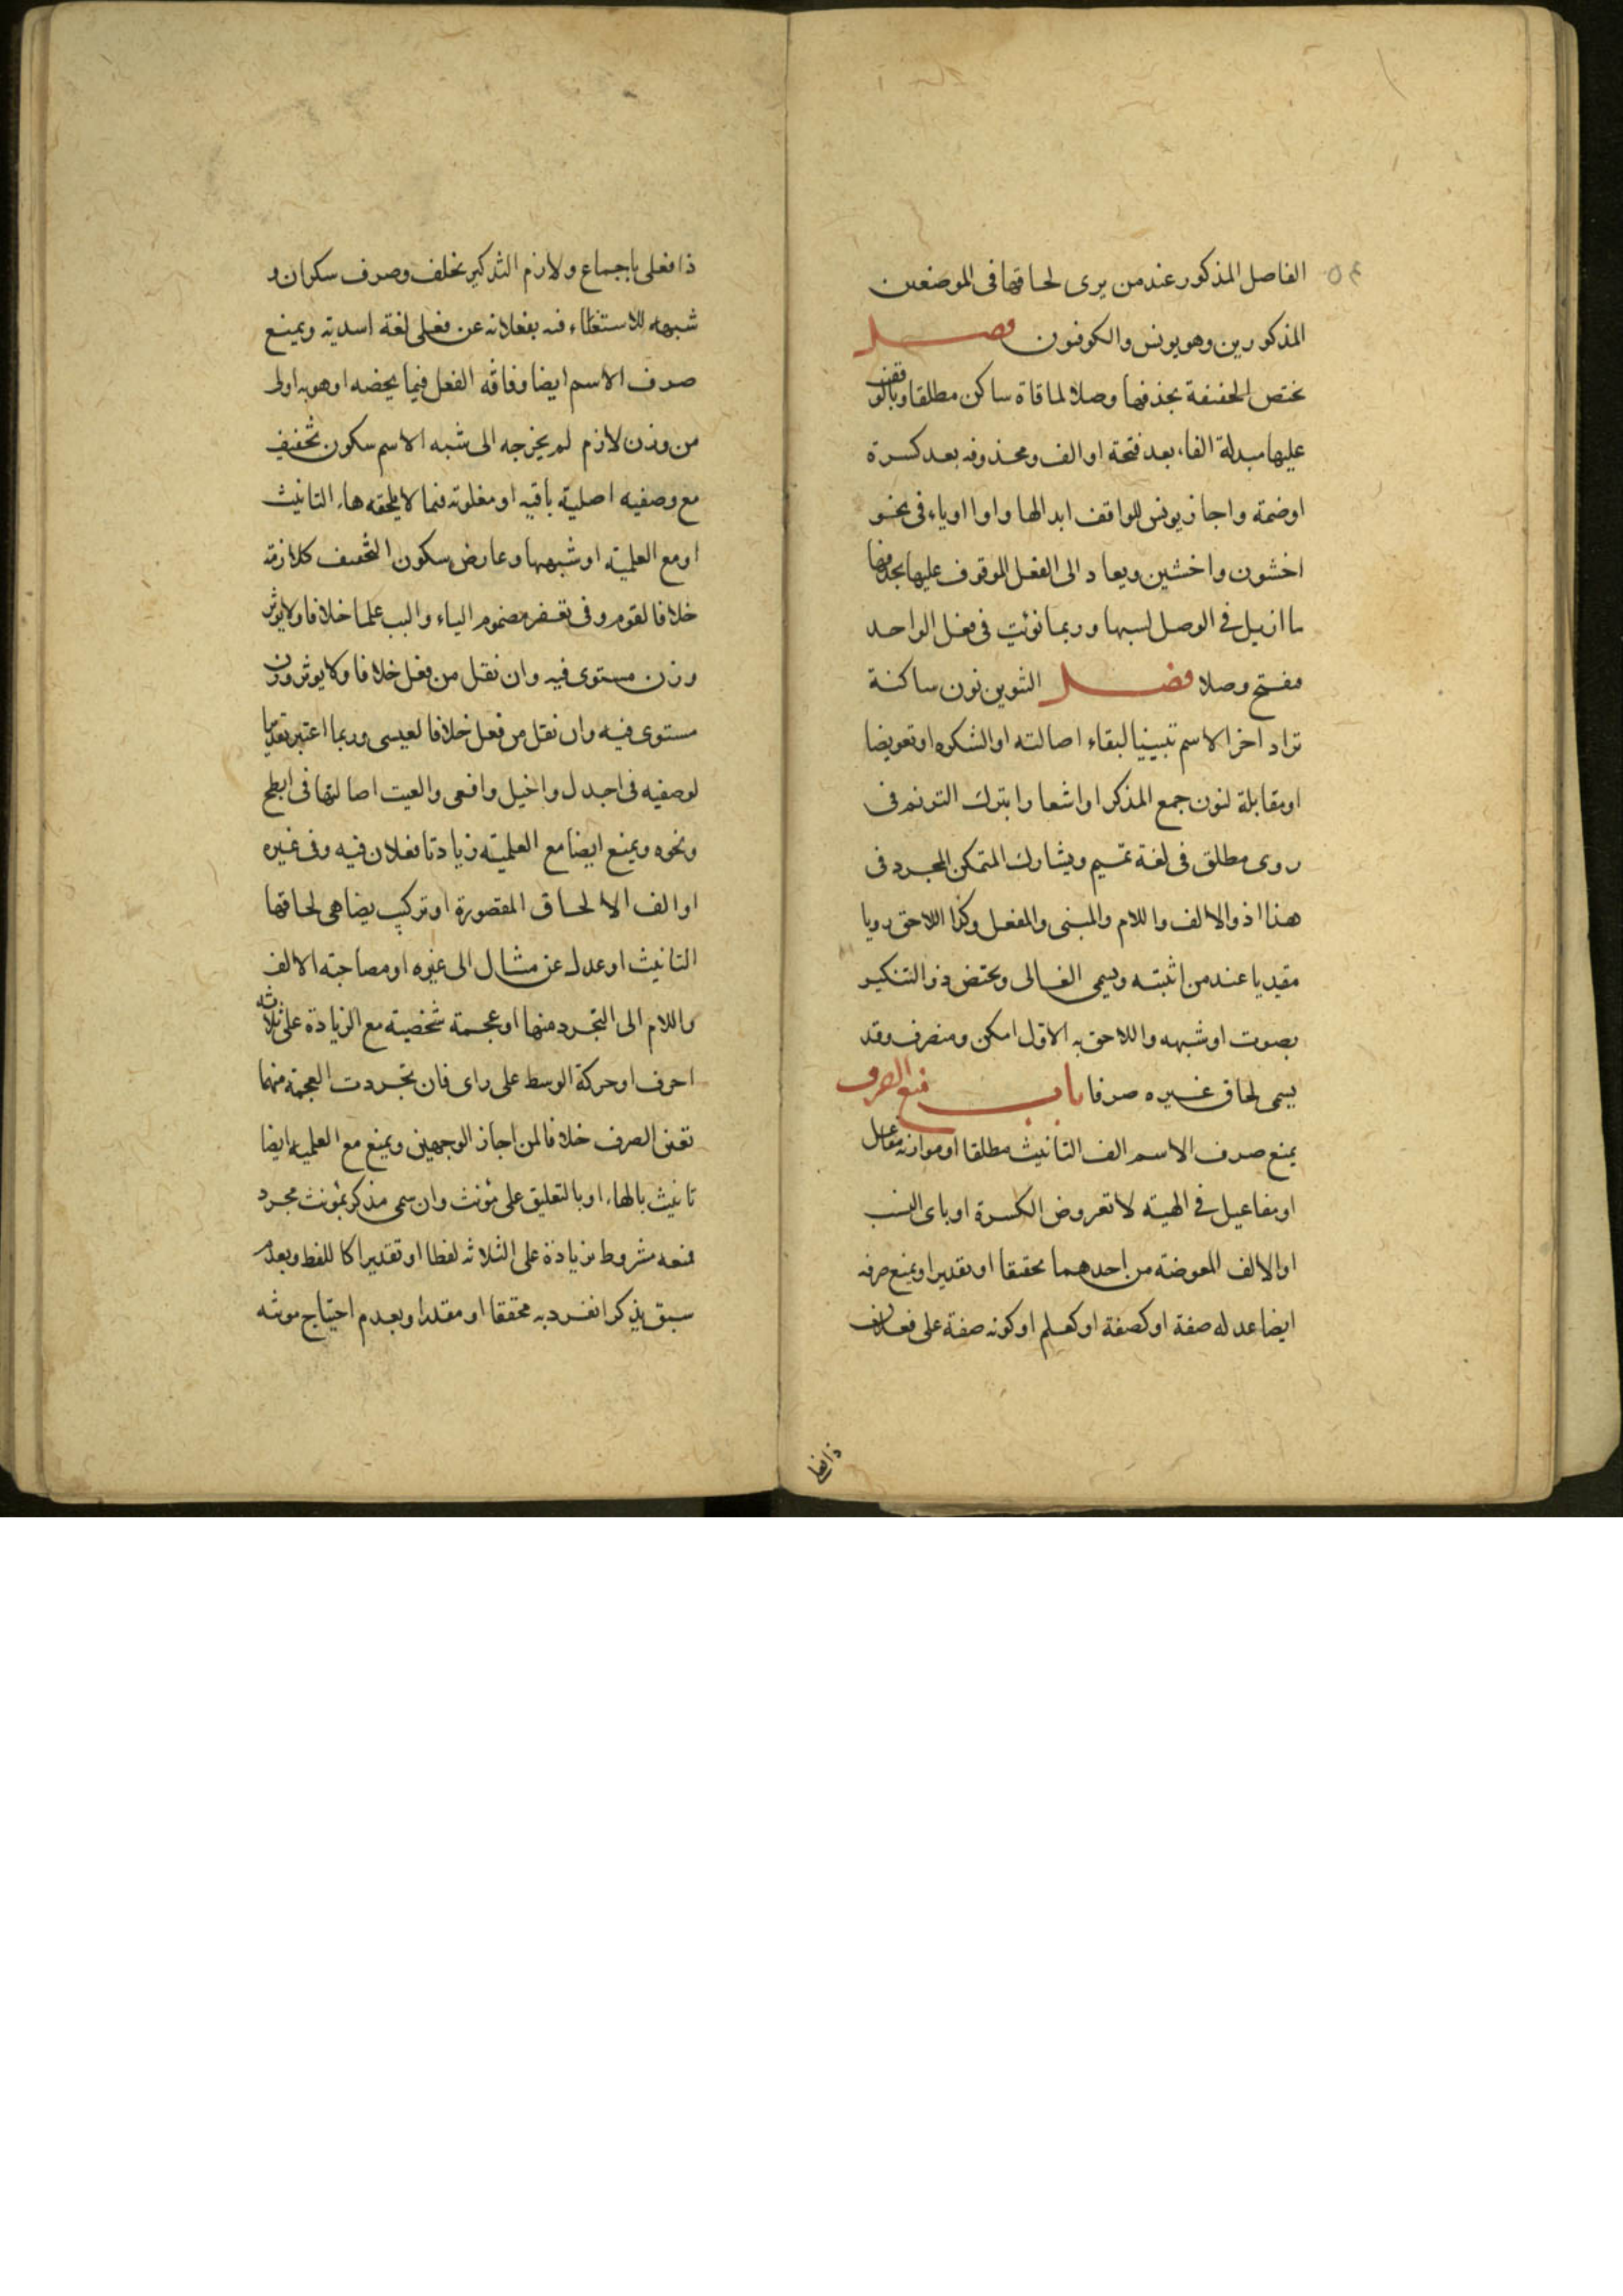 ٥٤
الفاصل المذكور عند من يرى لحاقها فى الموضعين
المذكورين وهو يونس والكوفيون فصل
تختص الخفيفة بحذفها وصلا لملاقاة ساكن مطلقا وبالوقف
عليها مبدلة الفا بعد فتحة او الف ومحذوفه بعد كسرة
او ضمة واجاز يونس للواقف ابدالها واوا او ياء فى نحو
اخشون واخشين ويعاد الى الفعل الموقوف عليها بحذفها
ما ازيل فى الوصل لسببها وربما نويت فى فعل الواحد
مفتح وصلا فصل التنوين نون ساكنة
تزاد اخر الاسم تبيينا لبقاء اصالته او لتنكيره او تعويضا
او مقابلة لنون جمع المذكر او اشعارا بترك الترنم فى
روى مطلق فى لغة تميم ويشارك المتمكن المجرد فى
هذا اذو الالف واللام والمبنى والفعل وكذا اللاحق رويا
مقيديا عند من اثبته ويسمى الغالى ويختص ذو التنكير
بصوت او شبهه واللاحق به الاول امكن ومنصرف وقد
يسمى لحاق غيره صرفا باب منع الصرف
يمنع صرف الاسم الف التانيث مطلقا او موازنه مفاعل
او مفاعيل فى الهيئه لا تعروض الكسرة او ياى النسب
او الالف المعوضة من احدهما تحقيقا او تقديرا ويمنع صرفه
ايضا عدله صفة او كصفة او كعلم او كونه صفة على فعلان
ذا فعلى
ذا فعلى باجماع ولازم التذكير بخلف وصرف سكران و
شبهه للاستغناء فيه بفعلانه عن فعلى لغة اسدية ويمنع
صرف الاسم ايضا وفاقه الفعل فيما يخصه او هو به اولى
من وزن لازم لم يخرجه الى شبه الاسم سكون تخفيف
مع وصفيه اصلية باقيه او مغلوبه فيما لا يلحقه هاء التانيث
او مع العلمية او شبهها وعارض سكون التخفيف كلازمه
خلافا لقوم وفى يعفر مضموم الياء والبب علما خلاف ولا يوثر
وزن مستوى فيه وان نقل من فعل خلافا ولا يوثر وزن
مستوى فيه وان نقل من فعل خلافا لعيسى وربما اعتبر تقديرا
لوصفيه فى اجدل واخيل وافعى والغيت اصالتها فى ابطح
ونحوه ويمنع ايضا مع العلميته زيادتا فعلان فيه وفى غيره
او الف الالحاق المقصورة او تركيب يضاهى لحاقها
التانيث او عدل عن مثال الى غيره او مصاحبته الالف
واللام الى التجرد منها او عجمة شخصية مع الزيادة على ثلاثه
احرف او حركة الوسط على راى فان تجردت العجمة منهما
تعين الصرف خلافا لمن اجاز الوجهين ويمنع مع العلميه ايضا
تانيث بالهاء او بالتعليق على مؤنث وان سمى مذكر بمؤنث مجرد
فمنعه مشروط بزيادة على الثلاثه لفظا او تقديرا كاللفظ وبعدم
سبق تذكير انفرد به محققا او مقدرا وبعدم احتياج مونثه